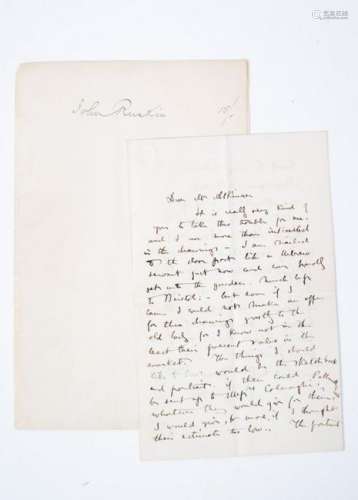 John Ruskin 10/-
Dear Mr Atkinson
It is really very kind of
you to take this trouble for me.
and I am more than interested
in the drawings - I am nailed
to the door post like a Hebrew
servant just now and can hardly
get into the garden. Much less
to Bristol: - but even if I
came I would not make an offer
for these drawings to the
old lady for I know not in the
least their present value in the
market. The things I should
like to would be the sketch book
and portrait if they could
be sent up to Messrs Colnaghi's
whatever they would give for them
I would give, or more if I thought
their estimate too low. The portrait